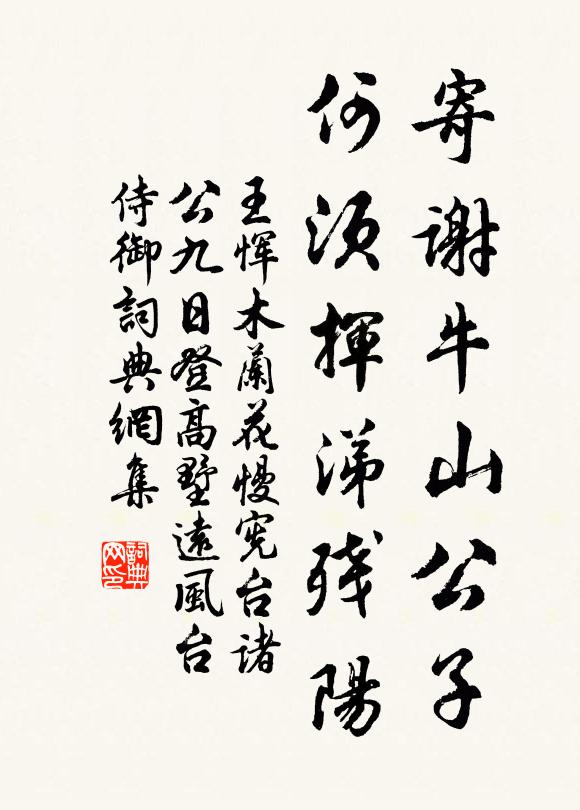 寄謝牛山公子
何須揮涕殘陽
王惲木蘭花慢憲台諸
公九日登高墅遠風台
侍御詞典網集
詞典
网印